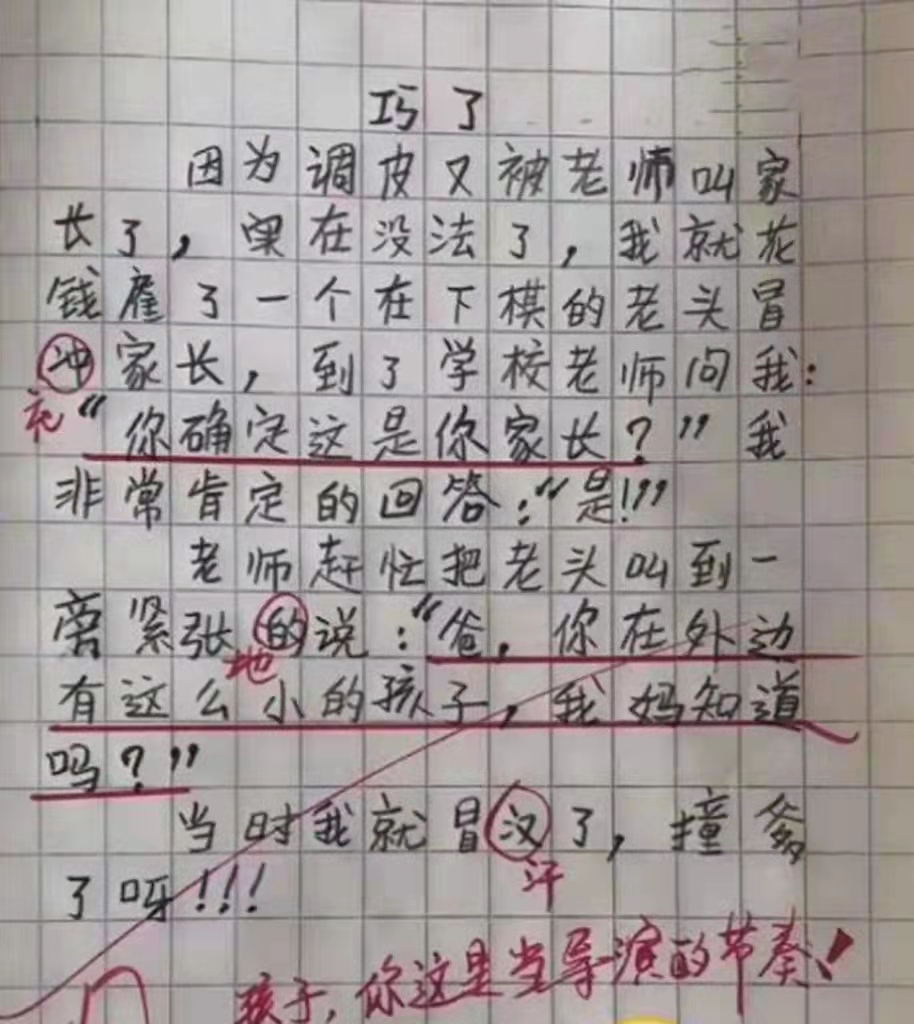 巧了
因为调皮又被老师叫家
长了，实在没法了，我就花
钱雇了一个在下棋的老头冒
冲家长，到了学校老师问我：
充
“你确定这是你家长？”我
非常肯定的回答：“是！”
老师赶忙把老头叫到一
旁紧张的说：“爸，你在外边
地
有这么小的孩子，我妈知道
吗？”
当时我就冒汉了，撞爷
汗
了呀！！！
孩子，你这是当导演的节奏！